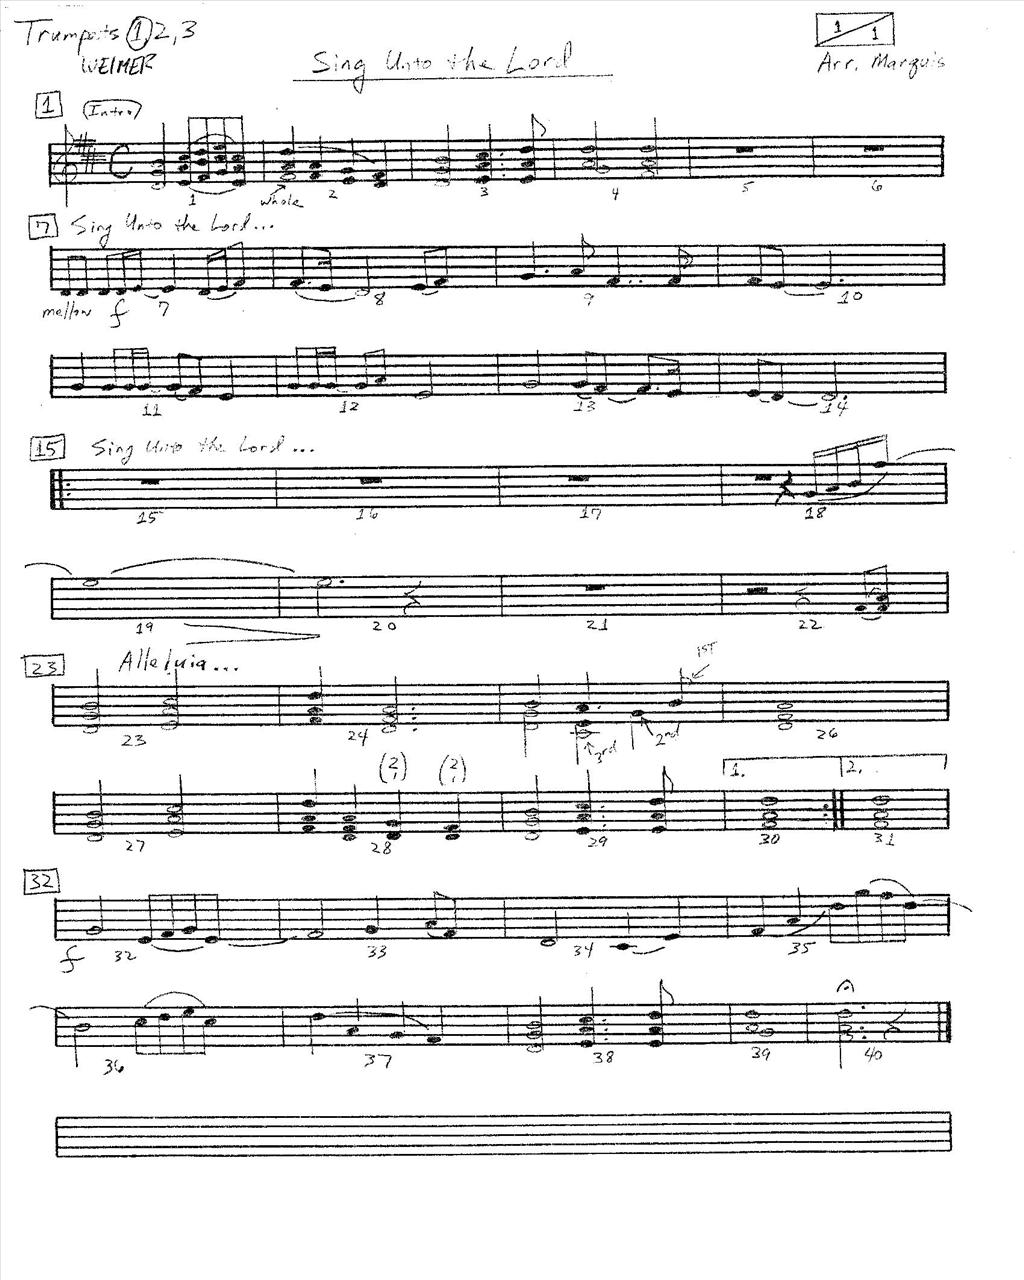 Trumpets 1, 2, 3
WEIMER
1/1
Sing Unto the Lord
Arr. Marquis
1 (Intro)
1 whole 2 3 4 5 6
7 Sing Unto the Lord...
mellow f 7 8 9 10
11 12 13 14
15 Sing Unto the Lord...
15 16 17 18
19 20 21 22
23 Alleluia...
1ST
23 24 3rd 2nd 26
(2 1) (2 1) 1. 2.
27 28 29 30 31
32
f 32 33 34 35
36 37 38 39 40